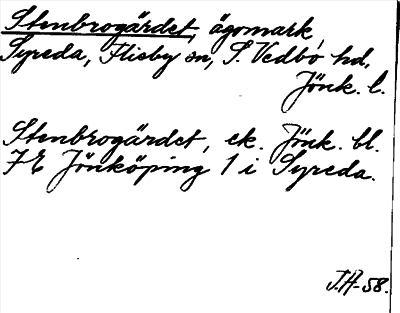 Stenbrogärdet, ägomark,
Syreda, Flisby sn, S. Vedbo hd,
Jönk. l.
Stenbrogärdet, ek. Jönk. bl.
7E Jönköping 1 i Syreda.
J.H-58.